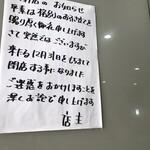 閉店のお知らせ
平素は格別のお引立てを
賜り厚く御礼申し上げます
さて突然ではございますが
来たる12月31日をもちまして
閉店する事になりました
ご迷惑をおかけしますことを
深くお詫び申し上げます
店主